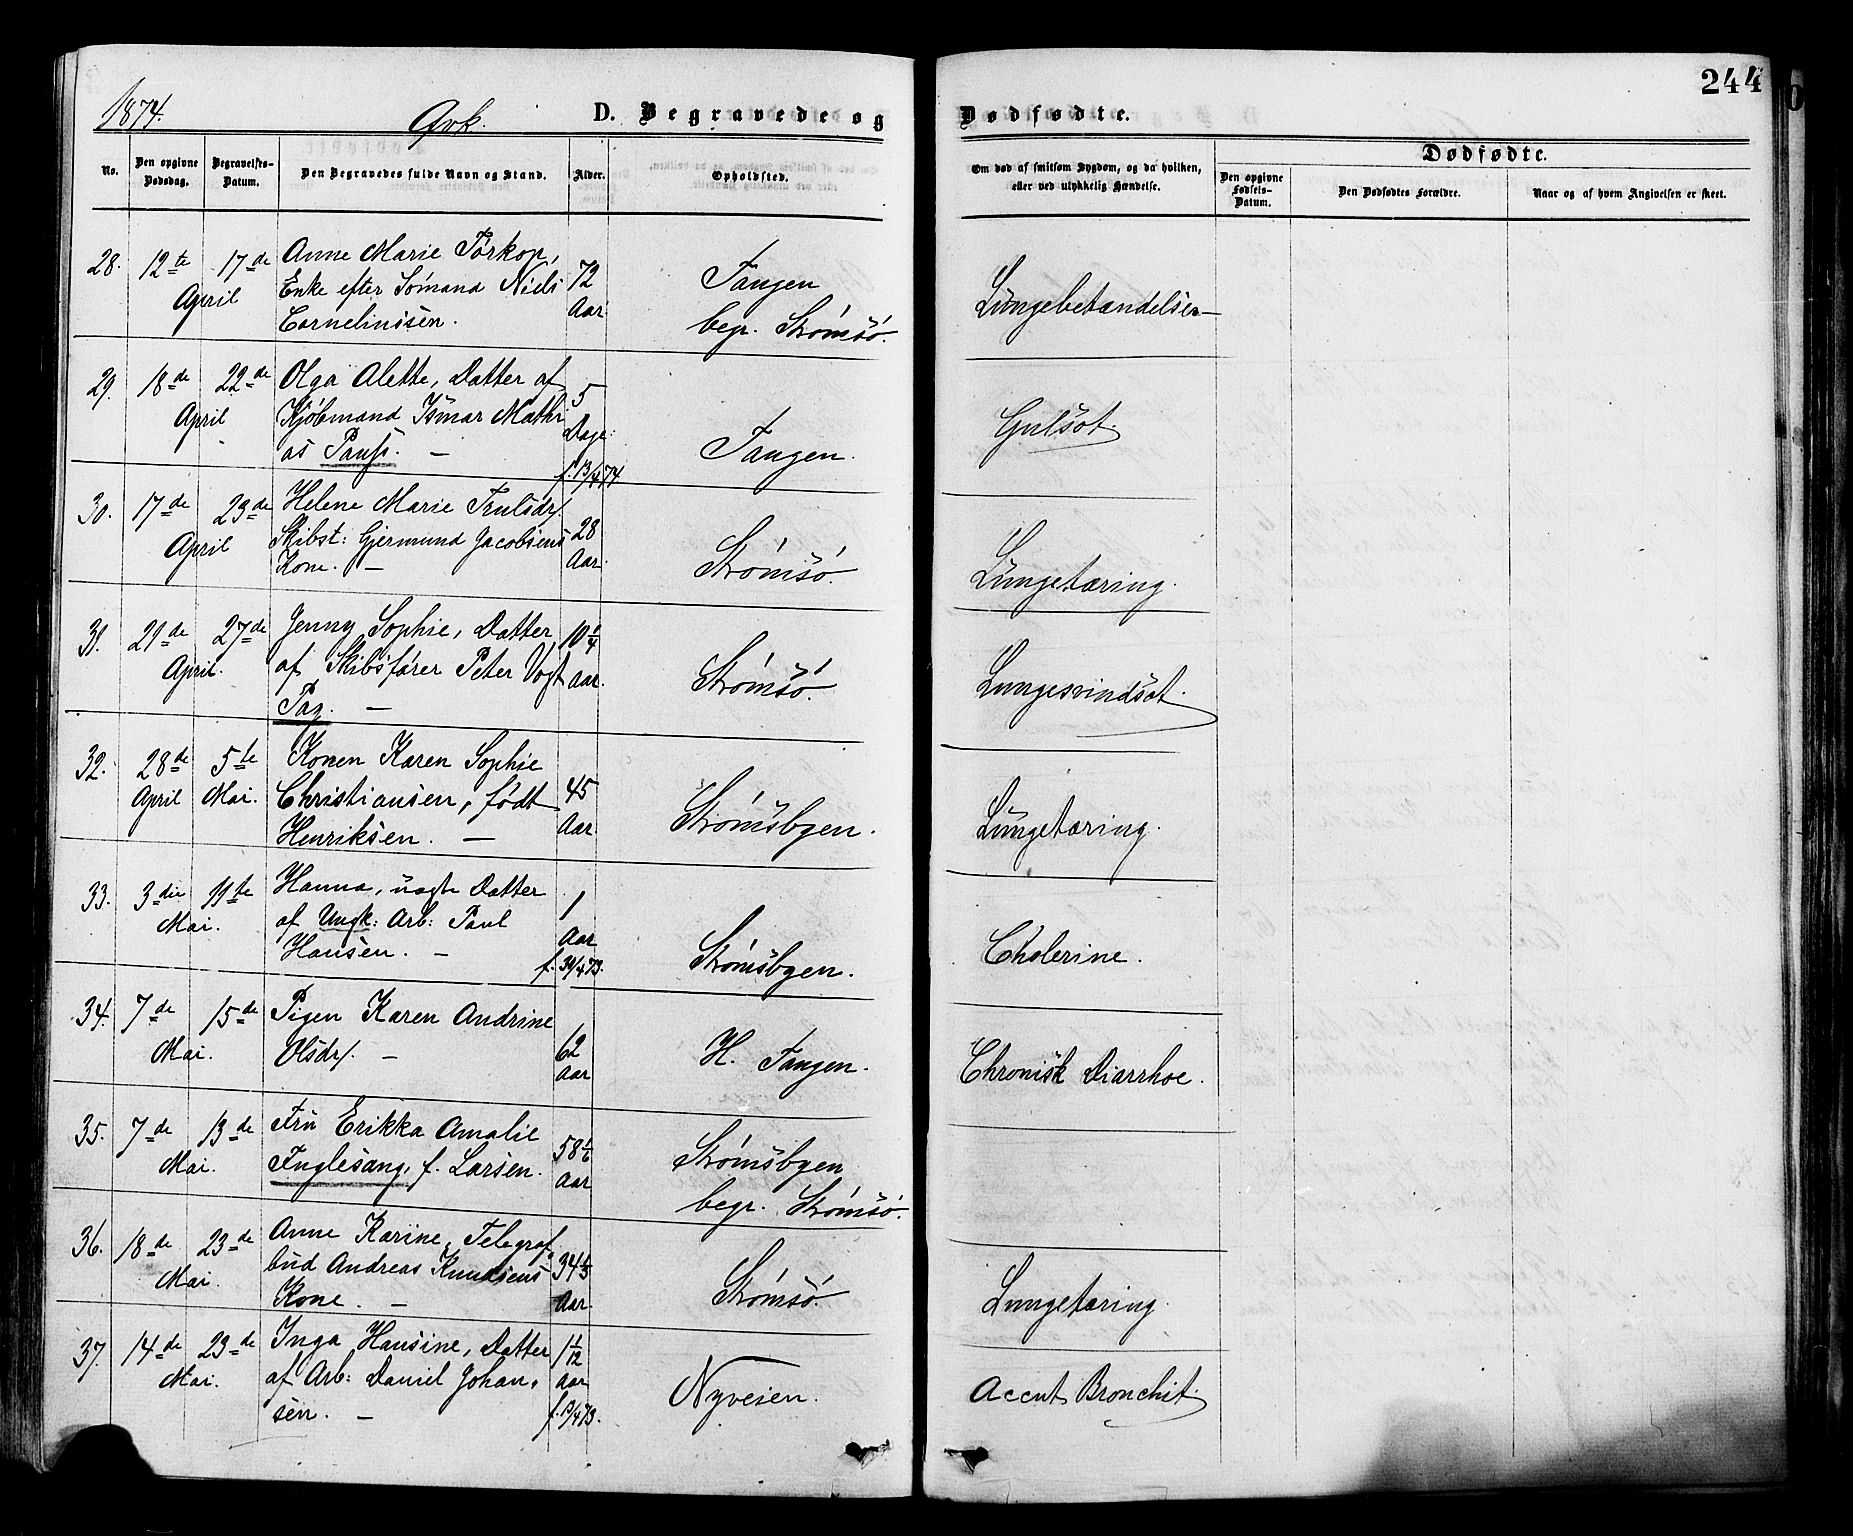 244
1874. Qvk. D. Begravede og Dødfødte.
No. Den opgivne Dødsdag. Begravelses-Datum. Den Begravedes fulde Navn og Stand. Alder. Opholdsted. Om død af smitsom Sygdom, og da hvilken, eller ved ulykkelig Hændelse.
Dødfødte.
Den opgivne Fødsels-Datum. Den Dødfødtes Forældre. Naar og af hvem Angivelsen er skeet.
28. 12te 17de Anne Marie Tørkop, 72 Tangen Lungebetændelse
April Enke efter Sømand Niels Aar
Corneliussen. begr. Strømsø.
29. 18de 22de Olga Alette, Datter af 5 Gulsot.
April Kjøbmand Ismar Mathi Dage
as Pauss. — f. 13/4 74 Tangen.
30. 17de 23de Helene Marie Trulsdr. 28
April Skibst: Gjermund Jacobsens Aar Strømsø. Lungetæring.
Kone. —
31. 21de 27de Jenny Sophie, Datter 10 1/4
April. af Skibsfører Peter Vogt Aar. Strømsø. Lungesvindsot.
Paz. —
32. 28de 5te Konen Karen Sophie 45
April Mai. Christiansen, født Aar. Strømsbyen. Lungetæring.
Henriksen. —
33. 3die 11te Hanna, uægte Datter 1
Mai. af Ungk: Arb: Paul Aar Cholerine.
Hansen. — f. 30/4 73. Strømsbyen.
34. 7de 15de Pigen Karen Andrine 62
Mai. Olsdr. — Aar H. Tangen. Chronisk Diarrhoe.
35. 7de 13de Fru Erikka Amalie 58 1/6 Strømsbyen
Mai. Fuglesang, f. Larsen. Aar begr. Strømsø.
36. 18de 23de Anne Karine, Telegraf 34 1/3
Mai. bud Andreas Knudsens Aar. Strømsø. Lungetæring.
Kone. —
37. 14de 23de Inga Hansine, Datter 1 1/12
Mai. af Arb: Daniel Johan, Aar Nyveien. Accut Bronchit.
sen. — f. 13/4 73.